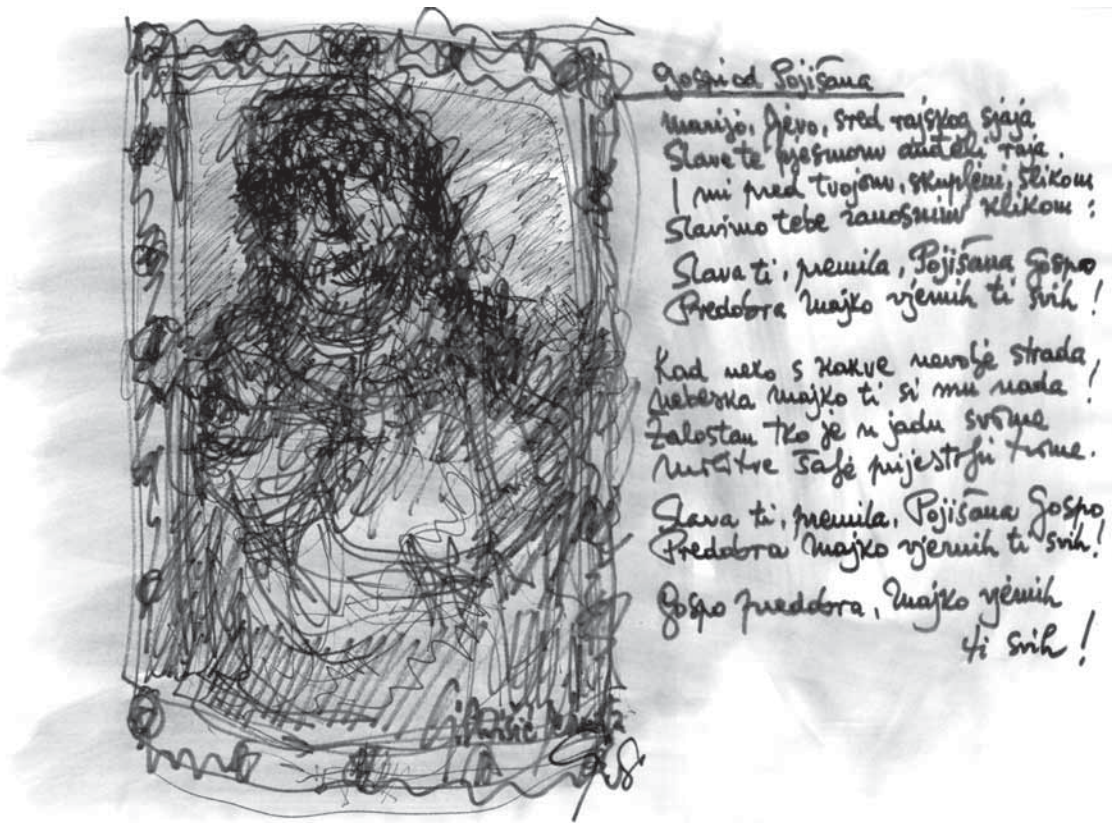 Gospi od Pojišana
Marijo, Djevo, sred rajskog sjaja
Slave te pjesmom anđeli raja.
I mi pred tvojom, skupljeni, slikom
Slavimo tebe zanosnim klikom:
Slava ti, premila, Pojišana Gospo
Predobra Majko vjernih ti svih!
Kad neko s kakve nevolje strada,
Nebeska Majko ti si mu nada!
Žalostan tko je u jadu svome
Molitve šalje prijestolju tvome.
Slava ti, premila, Pojišana Gospo
Predobra Majko vjernih ti svih!
Gospo predobra, Majko vjernih
ti svih!